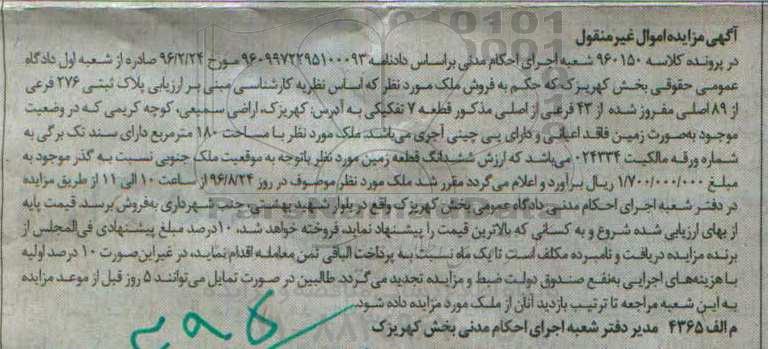 آگهی مزایده اموال غیر منقول
در پرونده کلاسه ۹۶۰۱۵۰ شعبه اجرای احکام مدنی براساس دادنامه ۹۶۰۹۹۷۲۲۹۵۱۰۰۰۹۳ مورخ ۹۶/۲/۲۴ صادره از شعبه اول دادگاه
عمومی حقوقی بخش کهریزک که حکم به فروش ملک مورد نظر که اساس نظریه کارشناسی مبنی بر ارزیابی پلاک ثبتی ۲۷۶ فرعی
از ۸۹ اصلی مفروز شده از ۴۳ فرعی از اصلی مذکور قطعه ۷ تفکیکی به آدرس: کهریزک، اراضی سمیعی، کوچه کریمی که در وضعیت
موجود به‌صورت زمین فاقد اعیانی و دارای پی چینی آجری می‌باشد. ملک مورد نظر با مساحت ۱۸۰ مترمربع دارای سند تک برگی به
شماره ورقه مالکیت ۰۲۴۳۳۴ می‌باشد که ارزش ششدانگ قطعه زمین مورد نظر باتوجه به موقعیت ملک جنوبی نسبت به گذر موجود به
مبلغ ۱/۷۰۰/۰۰۰/۰۰۰ ریال برآورد و اعلام می‌گردد مقرر شد ملک مورد نظر موصوف در روز ۹۶/۸/۲۴ از ساعت ۱۰ الی ۱۱ از طریق مزایده
در دفتر شعبه اجرای احکام مدنی دادگاه عمومی بخش کهریزک واقع در بلوار شهید بهشتی، جنب شهرداری به‌فروش برسد. قیمت پایه
از بهای ارزیابی شده شروع و به کسانی که بالاترین قیمت را پیشنهاد نماید، فروخته خواهد شد، ۱۰درصد مبلغ پیشنهادی فی‌المجلس از
برنده مزایده دریافت و نامبرده مکلف است تا یک ماه نسبت به پرداخت الباقی ثمن معامله اقدام نماید، در غیراین‌صورت ۱۰ درصد اولیه
با هزینه‌های اجرایی به‌نفع صندوق دولت ضبط و مزایده تجدید می‌گردد. طالبین در صورت تمایل می‌توانند ۵ روز قبل از موعد مزایده
به این شعبه مراجعه تا ترتیب بازدید آنان از ملک مورد مزایده داده شود.
م الف ۴۳۶۵ مدیر دفتر شعبه اجرای احکام مدنی بخش کهریزک